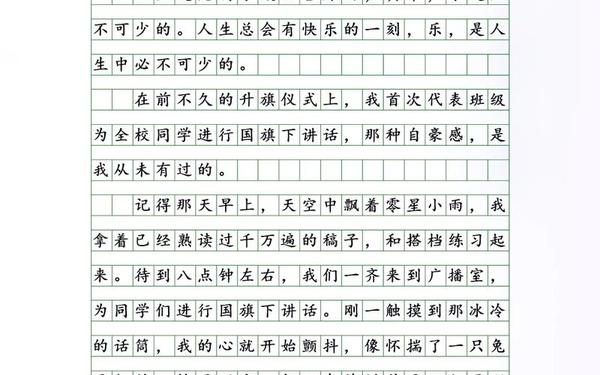 不可少的。人生总会有快乐的一刻,乐,是人
生中必不可少的。
在前不久的升旗仪式上,我首次代表班级
为全校同学进行国旗下讲话,那种自豪感,是
我从未有过的。
记得那天早上,天空中飘着零星小雨,我
拿着已经熟读过千万遍的稿子,和搭档练习起
来。待到八点钟左右,我们一齐来到广播室,
为同学们进行国旗下讲话。刚一触摸到那冰冷
的话筒,我的心就开始颤抖,像怀揣了一只兔